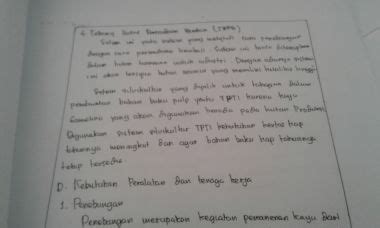 4. Tebang Rumpang dan
Sistem ini yaitu sistem yang meliputi cara penebangan
dengan cara permudaan kembali. Sistem ini harus diterapkan
dalam hutan tanaman untuk industri. Dengan adanya sistem
ini akan tercipta hutan tanaman yang memiliki kualitas tinggi.
Sistem silvikultur yang dipilih untuk tanaman dalam
pembuatan bahan baku pulp yaitu TPTI karena kayu
yang akan digunakan berada pada hutan Produksi
digunakan sistem silvikultur TPTI kebutuhan kertas tiap
tahunnya meningkat dan agar bahan baku tiap tahunnya
tetap tersedia.
D. Kebutuhan Peralatan dan tenaga kerja
1. Penebangan
Penebangan merupakan kegiatan pemanenan kayu dari